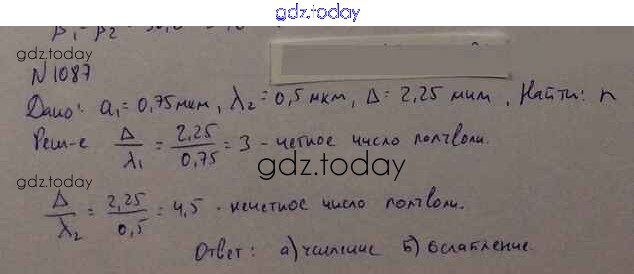 gdz.today
gdz.today
N 1087
Дано: a₁ = 0,75 мкм, λ₂ = 0,5 мкм, Δ = 2,25 мкм, Найти: n
Реш-е Δ/λ₁ = 2,25/0,75 = 3 - четное число полуволн.
gdz.today
gdz.today
Δ/λ₂ = 2,25/0,5 = 4,5 - нечетное число полуволн.
Ответ: а) усиление б) ослабление
gdz.today